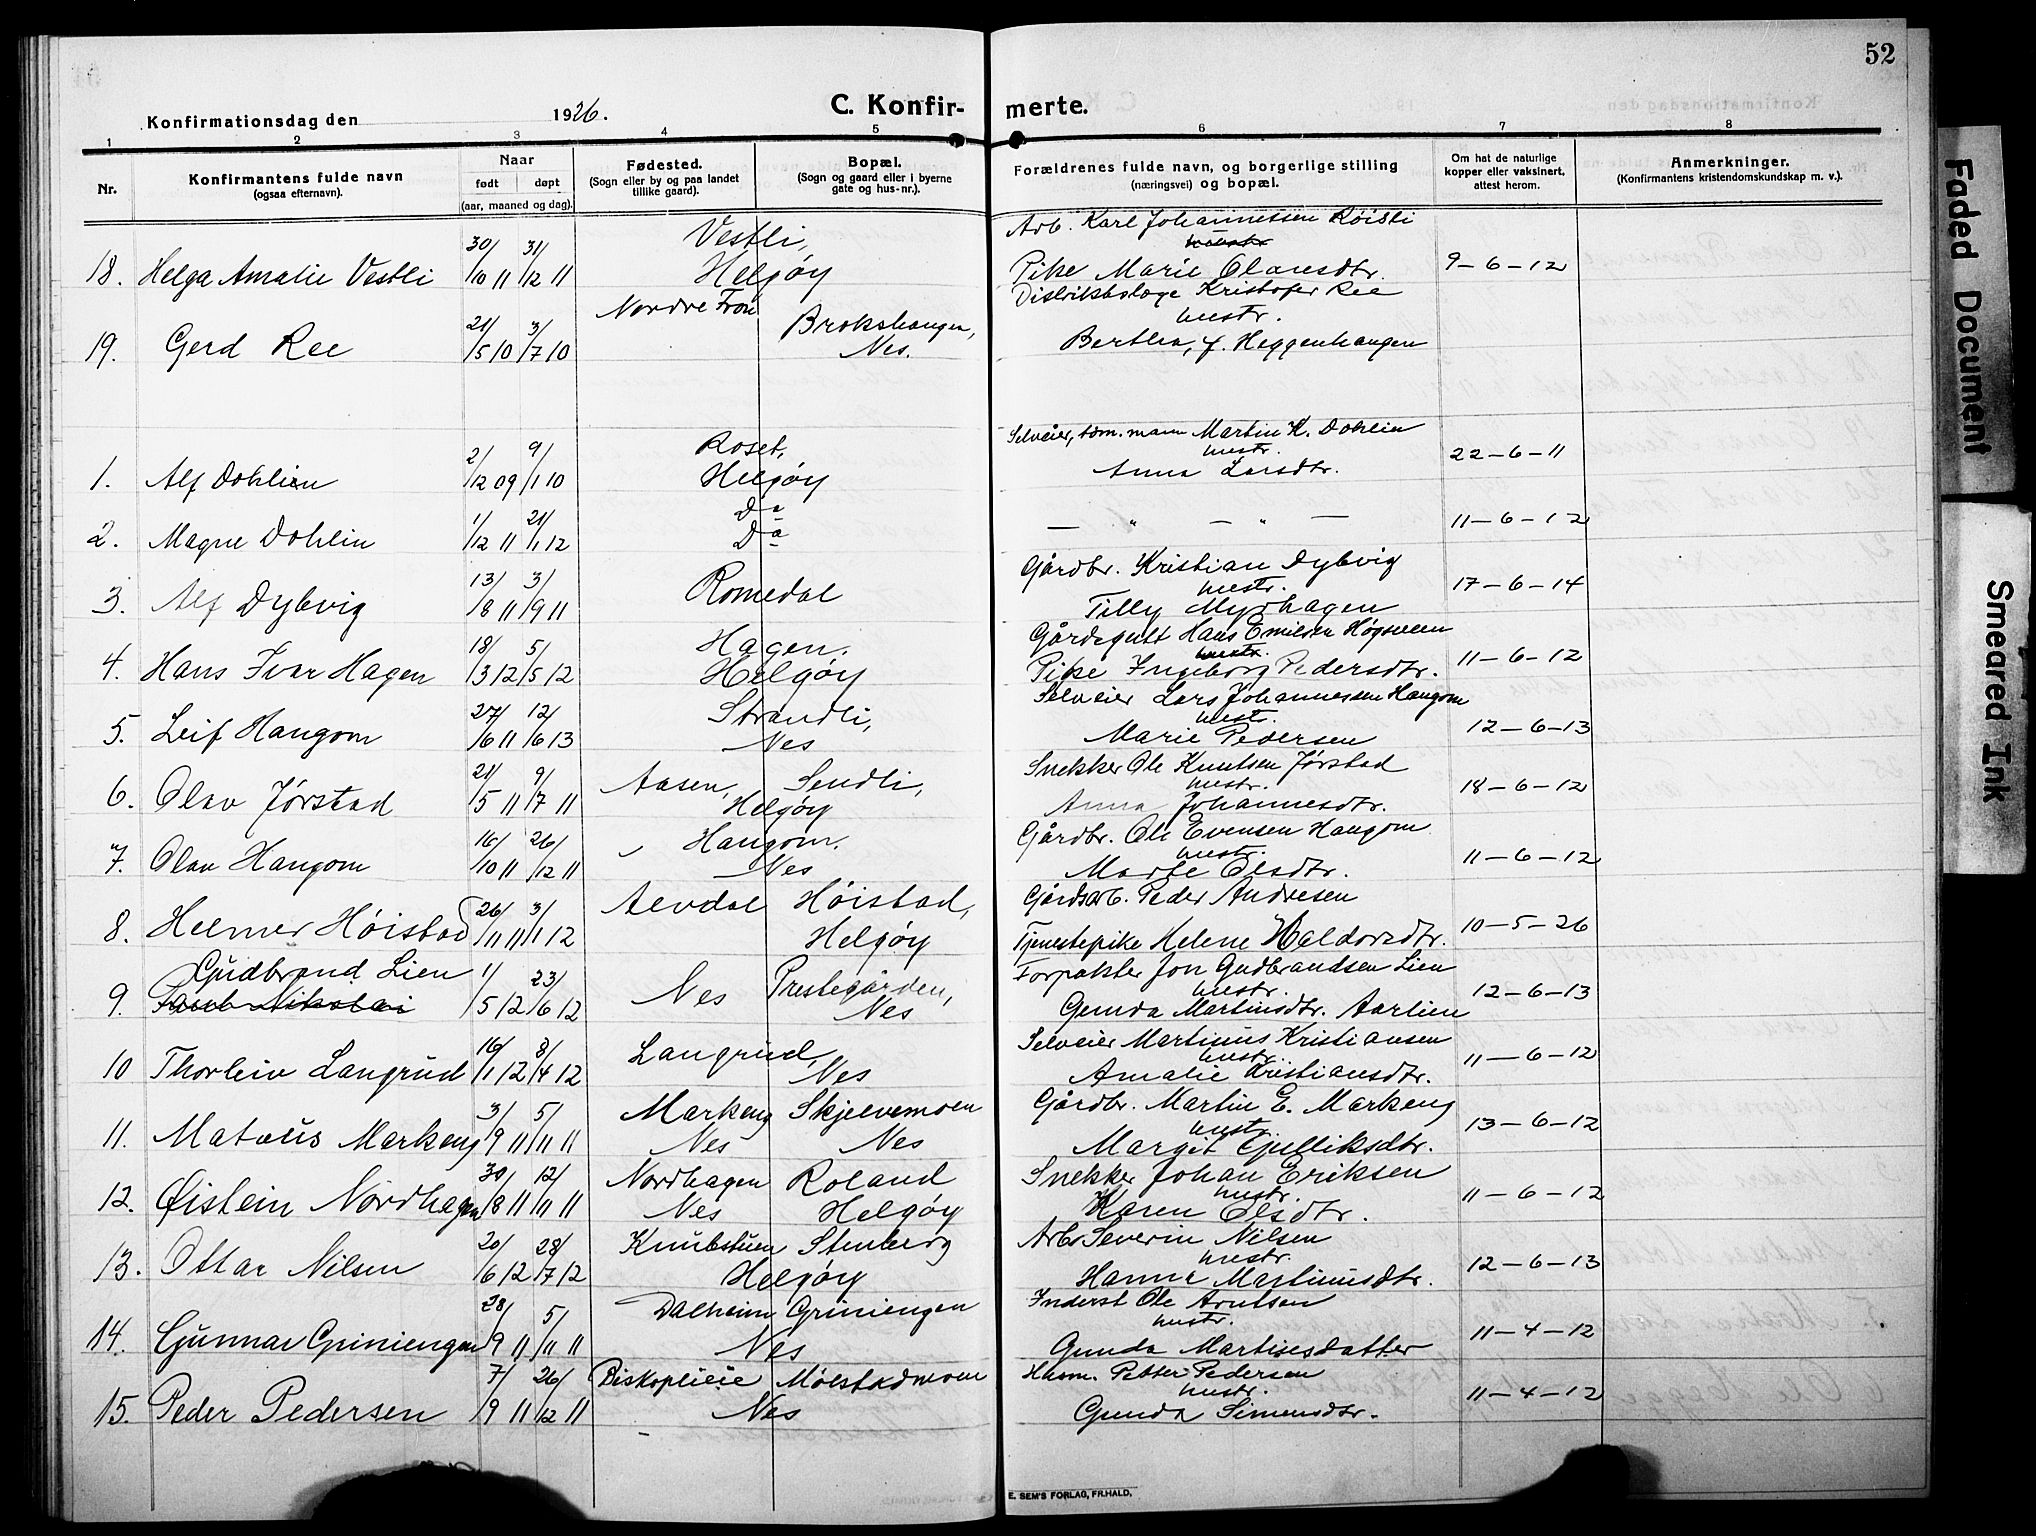 52
Konfirmationsdag den 1926.
C. Konfir- merte.
1 2 3 4 5 6 7 8
Nr.
Konfirmantens fulde navn
(ogsaa efternavn).
Naar
født døpt
(aar, maaned og dag).
Fødested.
(Sogn eller by og paa landet
tillike gaard).
Bopæl.
(Sogn og gaard eller i byerne
gate og hus-nr.).
Forældrenes fulde navn, og borgerlige stilling
(næringsvei) og bopæl.
Om hat de naturlige
kopper eller vaksinert,
attest herom.
Anmerkninger.
(Konfirmantens kristendomskundskap m. v.).
Vestli, Arb. Karl Johannessen Røisli
hustr.
18. Helga Amalie Vestli 30/10 11 31/12 11 Helgøy Pike Marie Olavesdtr. 9-6-12
Nordre Fron Distriktslæge Kristofer Ree
Brokshaugen, hustr.
19. Gerd Ree 21/5 10 3/7 10 Nes. Berthea, f. Heggenhaugen
Roset, Selveier, tøm.mann Martin K. Dohlen
hustr.
1. Alf Dohlen 2/12 09 9/1 10 Helgøy Anna Larsdtr. 22-6-11
Do
2. Magne Dohlen 1/12 11 21/1 12 Do — " — " — 11-6-12
Gårdbr. Kristian Dybvig
hustr.
3. Alf Dybvig 13/8 11 3/9 11 Romedal Tilly Myrhagen 17-6-14
Hagen, Gårdsgutt Hans Emilsen Høgsveen
hustr.
4. Hans Ivar Hagen 18/3 12 5/5 12 Helgøy Pike Ingeborg Pedersdtr. 11-6-12
Strandli, Selveier Lars Johannessen Haugom
hustr.
5. Leif Haugom 27/6 11 12/6 13 Nes Marie Pedersen 12-6-13
Aasen, Sendli, Snekker Ole Knutsen Jørstad
hustr.
6. Olav Jørstad 21/5 11 9/7 11 Helgøy Anna Johannesdtr. 18-6-12
Haugom. Gårdbr. Ole Evensen Haugom
hustr.
7. Olav Haugom 16/10 11 26/12 11 Nes Marte Olsdtr. 11-6-12
Alvdal Høistad, Gårdsarb. Peder Andresen
8. Helmer Høistad 26/11 11 3/1 12 Helgøy Tjenestepike Helene Haldorsdtr. 10-5-26
Gudbrand Lien Nes Prestegården, Forpakter Jon Gudbrandsen Lien
hustr.
9. Jacob Nikolai 1/5 12 23/6 12 Nes Gunda Martinsdtr. Aarlien 12-6-13
Langrud, Selveier Martinus Kristiansen
hustr.
10 Thorleiv Langrud 16/1 12 8/4 12 Nes Amalie Kristiansdtr. 11-6-12
Markeng Skjelvemoen Gårdbr. Martin E. Markeng
hustr.
11. Mateus Markeng 3/9 11 5/11 11 Nes Nes Margit Gulliksdtr. 13-6-12
Nordhagen Roland Snekker Johan Eriksen
hustr.
12. Øistein Nordhagen 30/8 11 12/11 11 Nes Helgøy Karen Olsdtr. 11-6-12
Knubstuen Stenberg Arb. Severin Nilsen
hustr.
13. Ottar Nilsen 20/6 12 28/7 12 Helgøy Hanna Martinusdtr. 12-6-13
Dalheim Griniengen Inderst Ole Arntsen
hustr.
14. Gunnar Griniengen 28/9 11 5/11 11 Nes Gunda Martinesdatter 11-4-12
Biskoplieie Molstadmoen Husm. Petter Pedersen
hustr.
15. Peder Pedersen 7/9 11 26/12 11 Nes Gunda Simensdtr. 11-4-12
E. SEM'S FORLAG, FR.HALD.
Faded Document
Smeared Ink